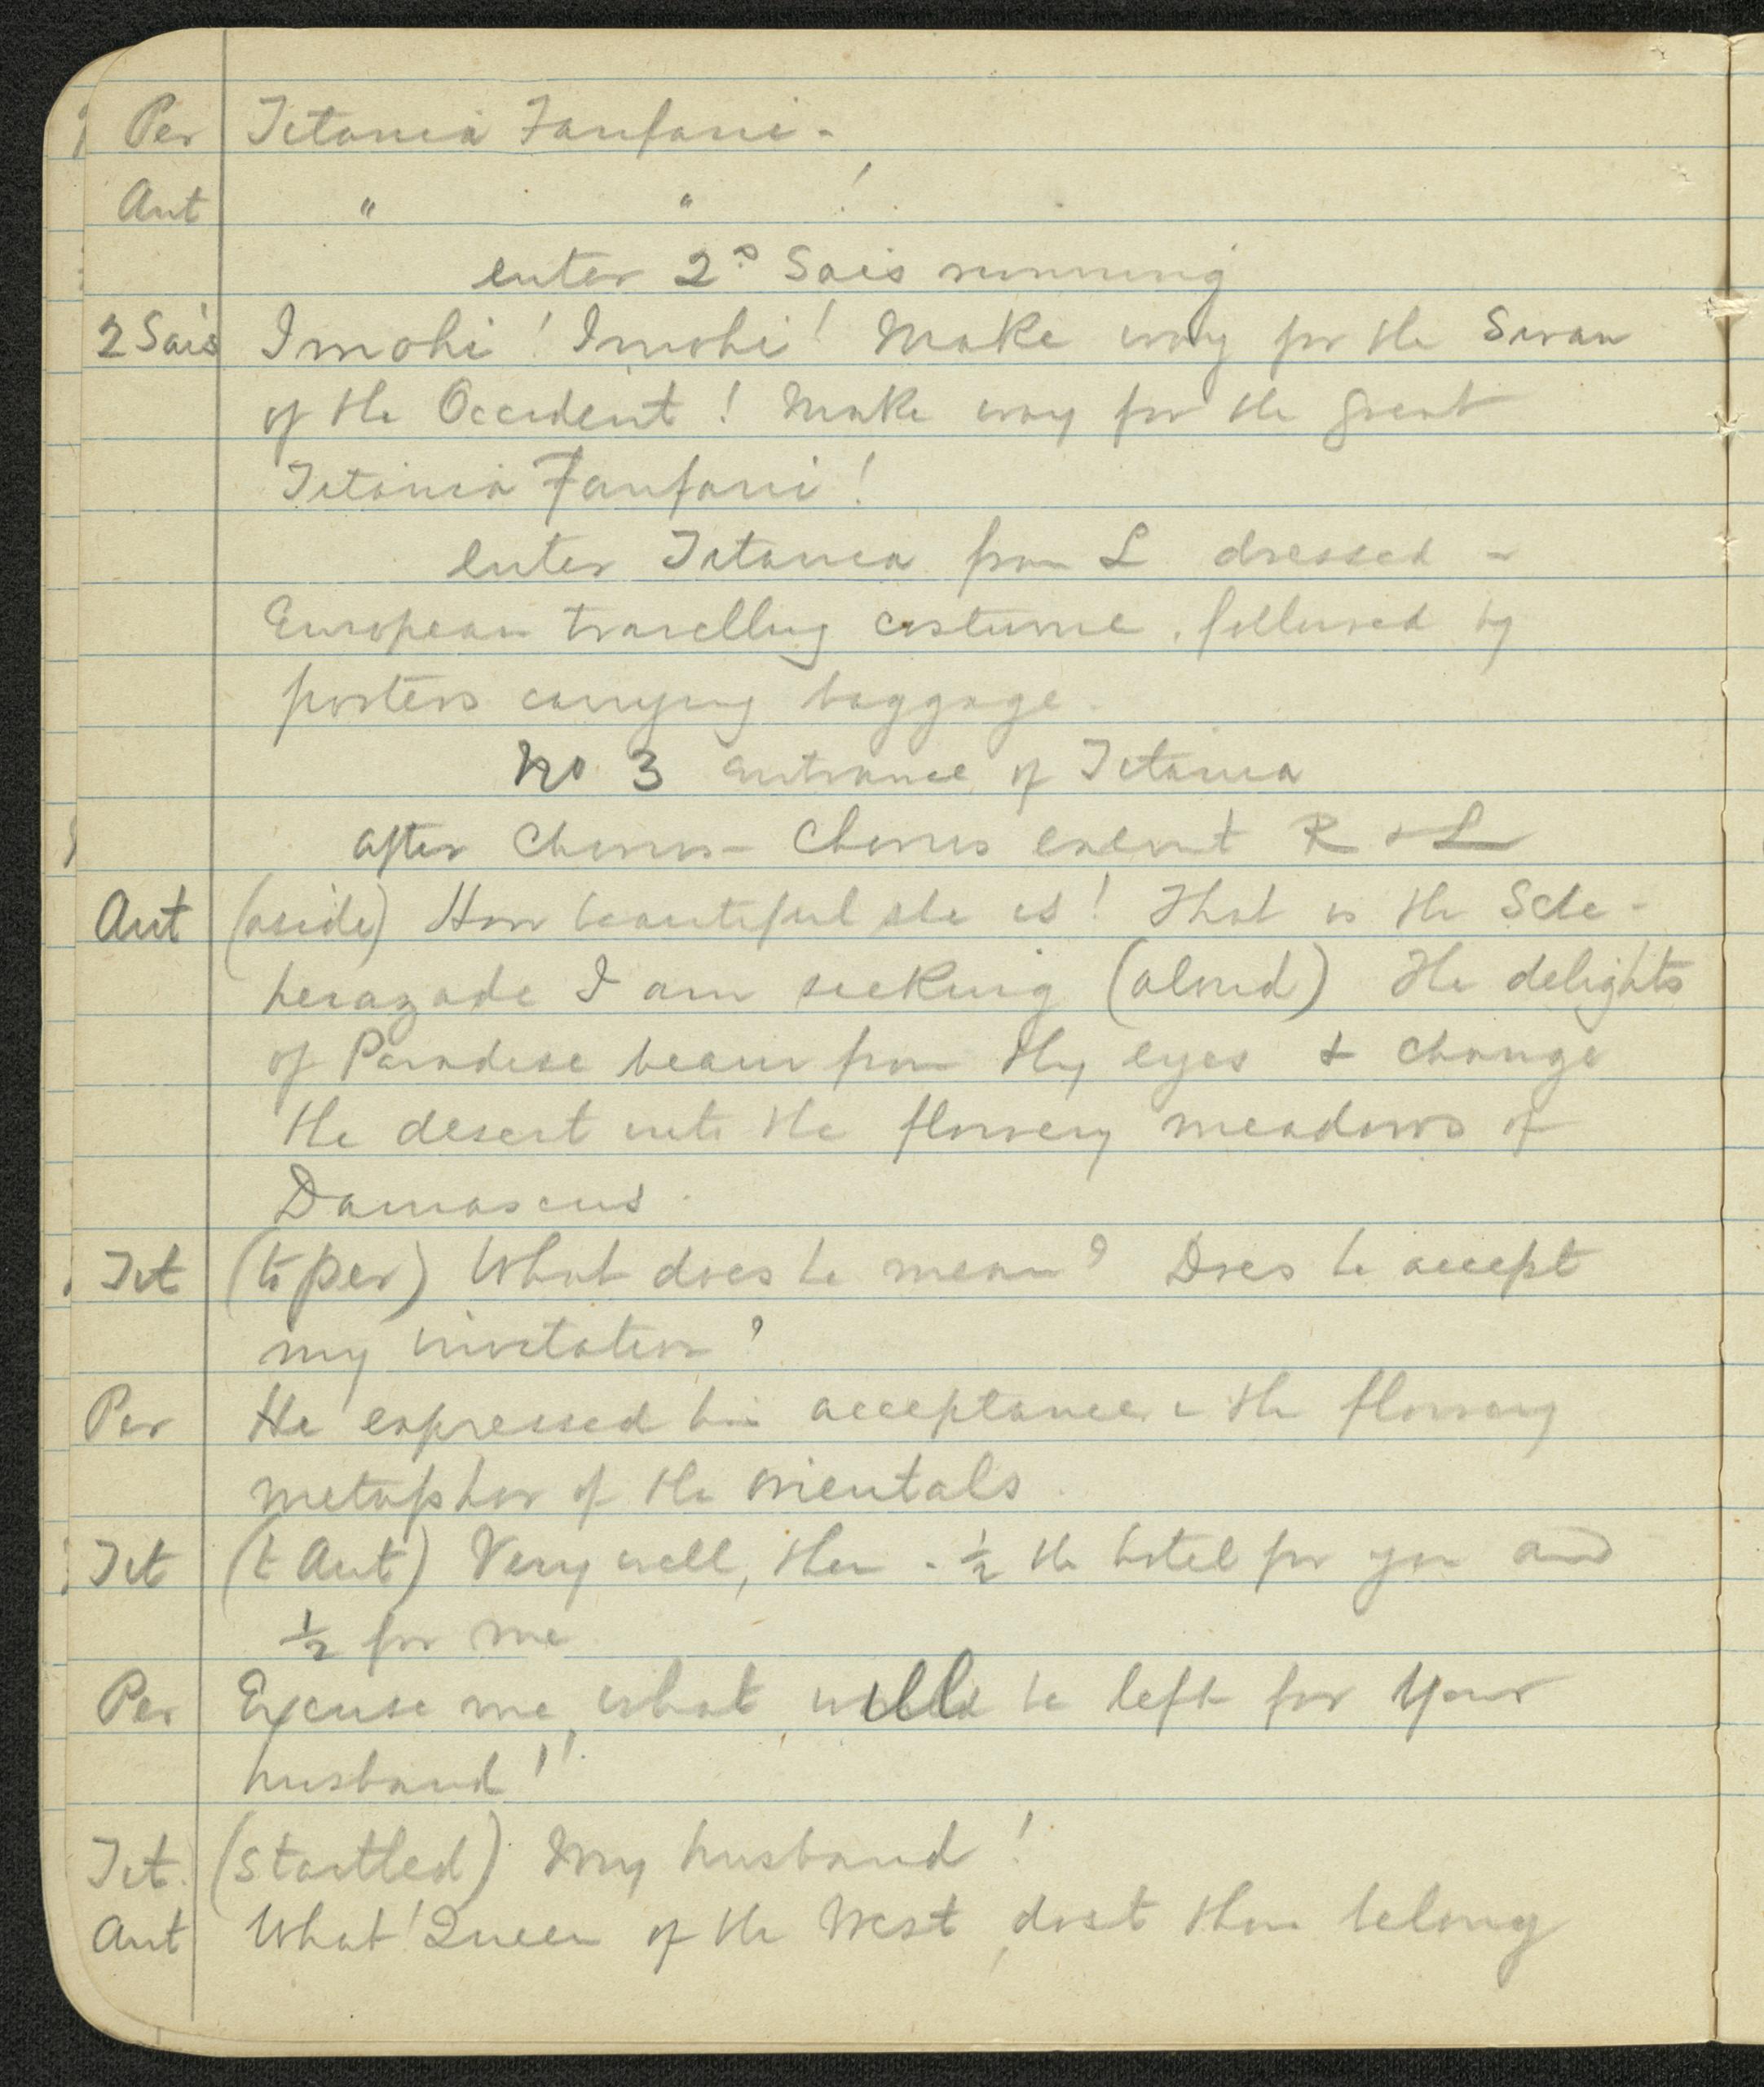 Per Titania Fanfani -
Ant " " !
enter 2º Sais running
2 Sais Imshi ! Imshi ! Make way for the Swan
of the Occident ! Make way for the great
Titania Fanfani !
enter Titania from L dressed -
European travelling costume, followed by
porters carrying baggage.
No 3 entrance of Titania
after Chorus - Chorus exeunt R & L
Ant (aside) How beautiful she is ! That is the Sche-
herazade I am seeking (aloud) The delights
of Paradise beam from thy eyes & change
the desert into the flowery meadows of
Damascus.
Tit (to Per) What does he mean ? Does he accept
my invitation ?
Per He expressed his acceptance in the flowery
metaphor of the orientals.
Tit (to Ant) Very well, then - ½ the hotel for you and
½ for me
Per Excuse me, what will be left for your
husband !!
Tit. (startled) My husband !
Ant What ! Queen of the West, dost thou belong